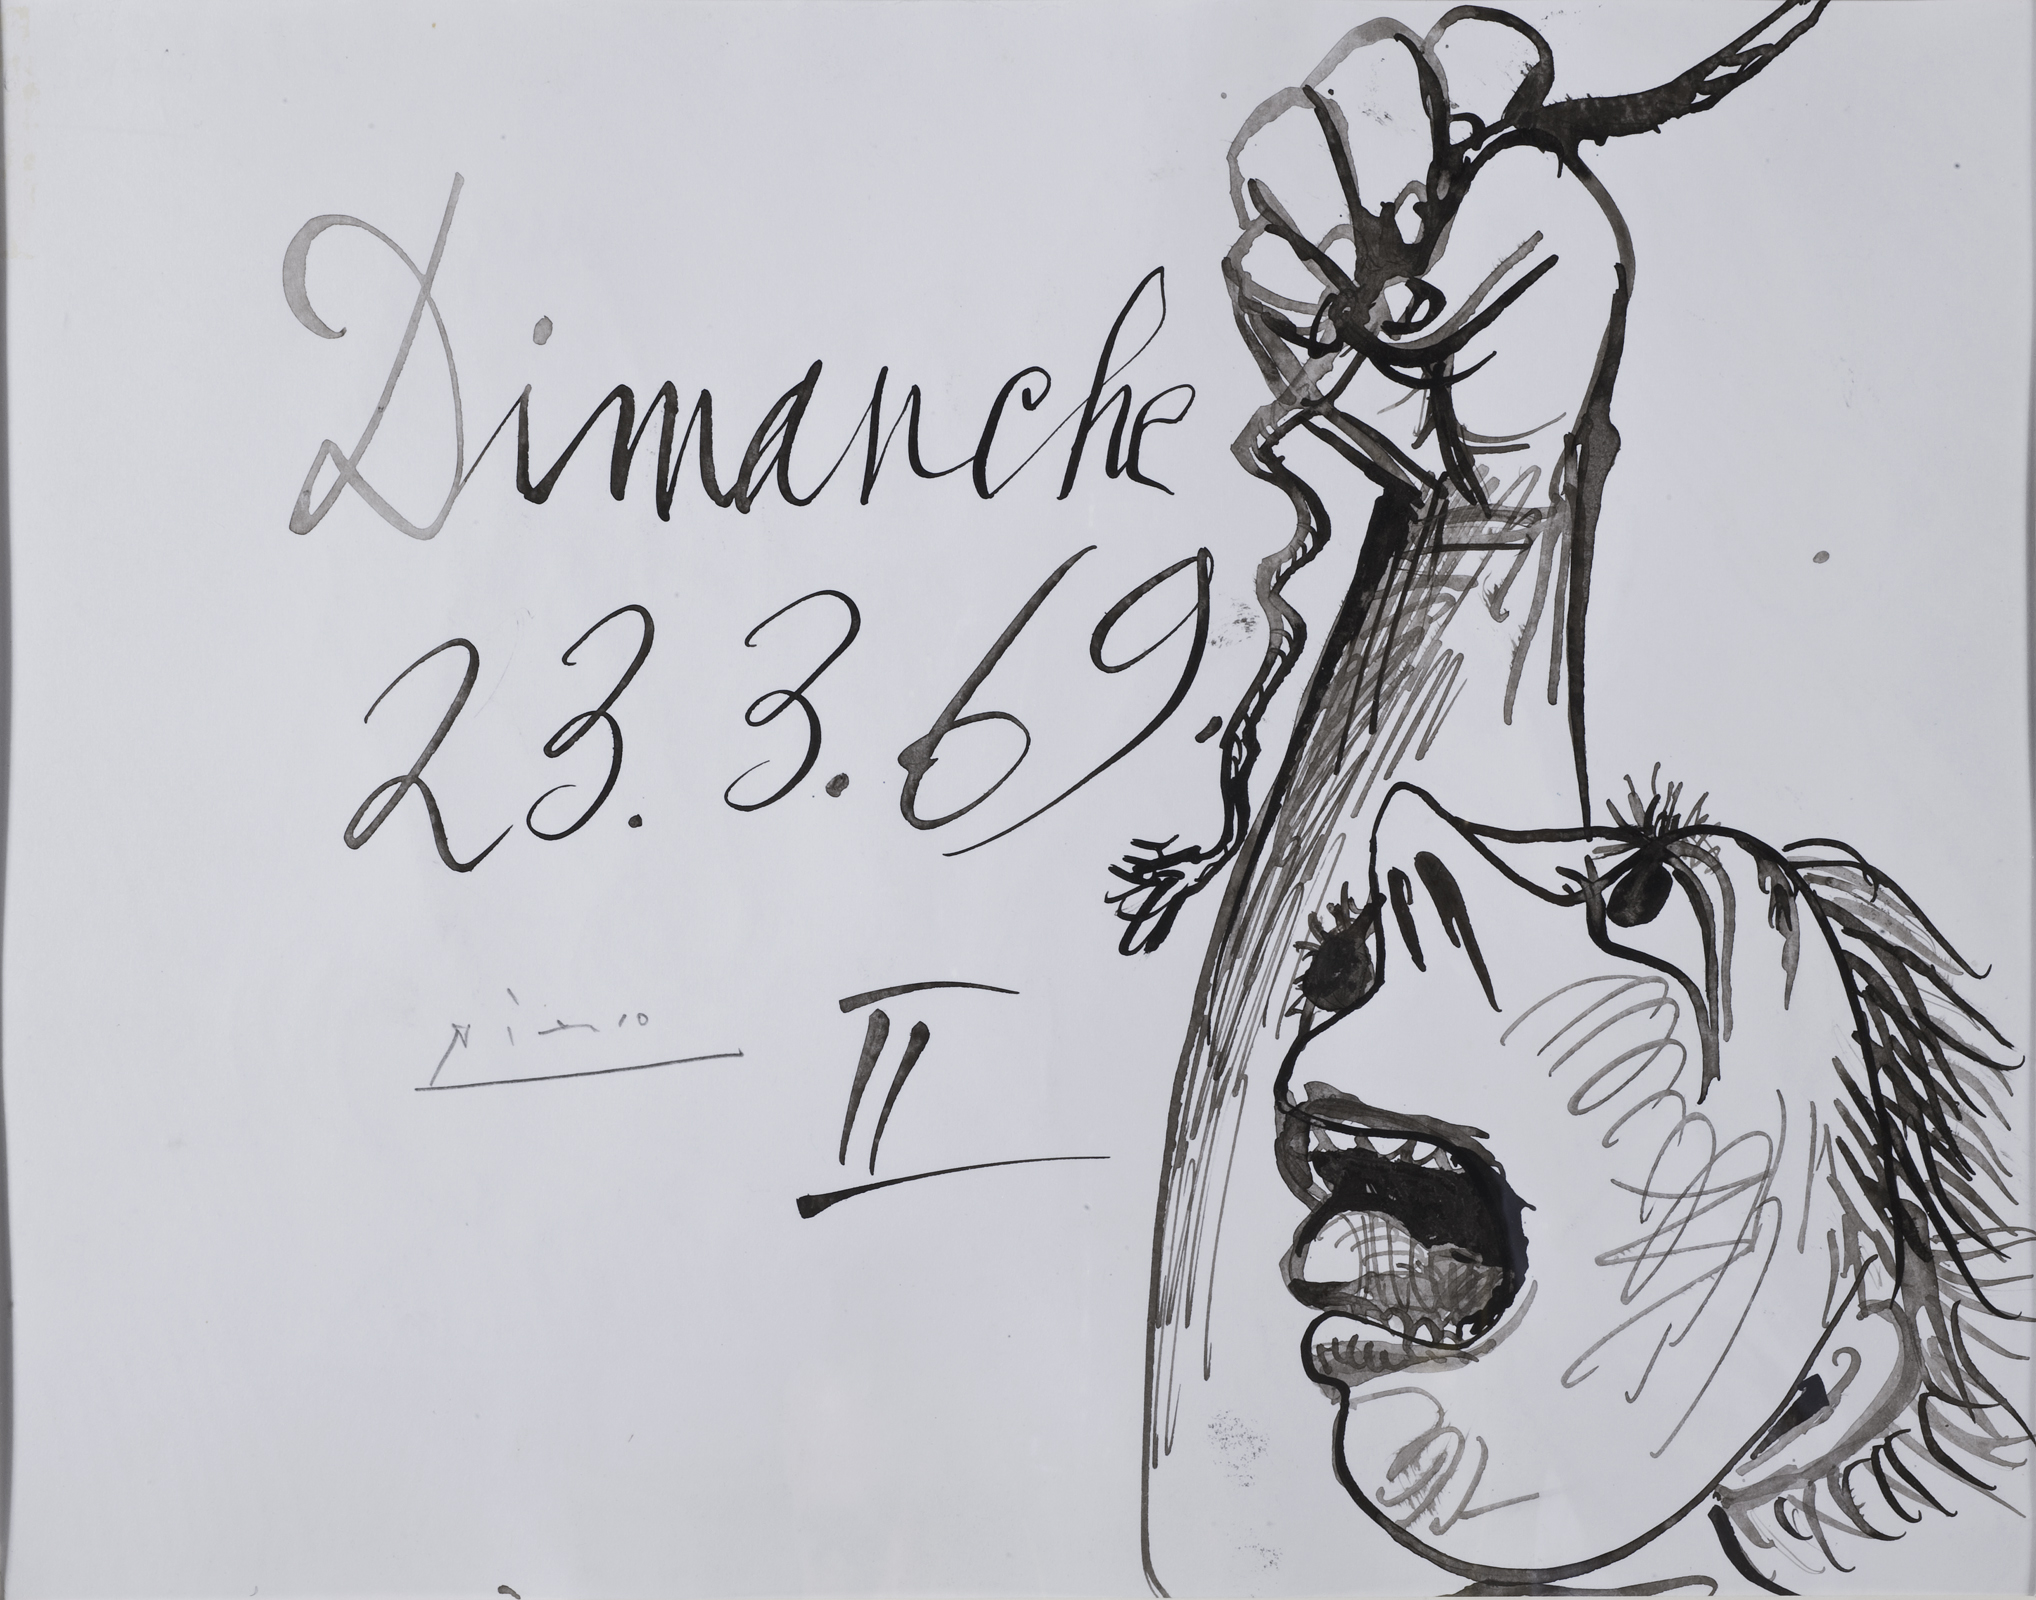 Dimanche
23. 3. 69.
II
Picasso